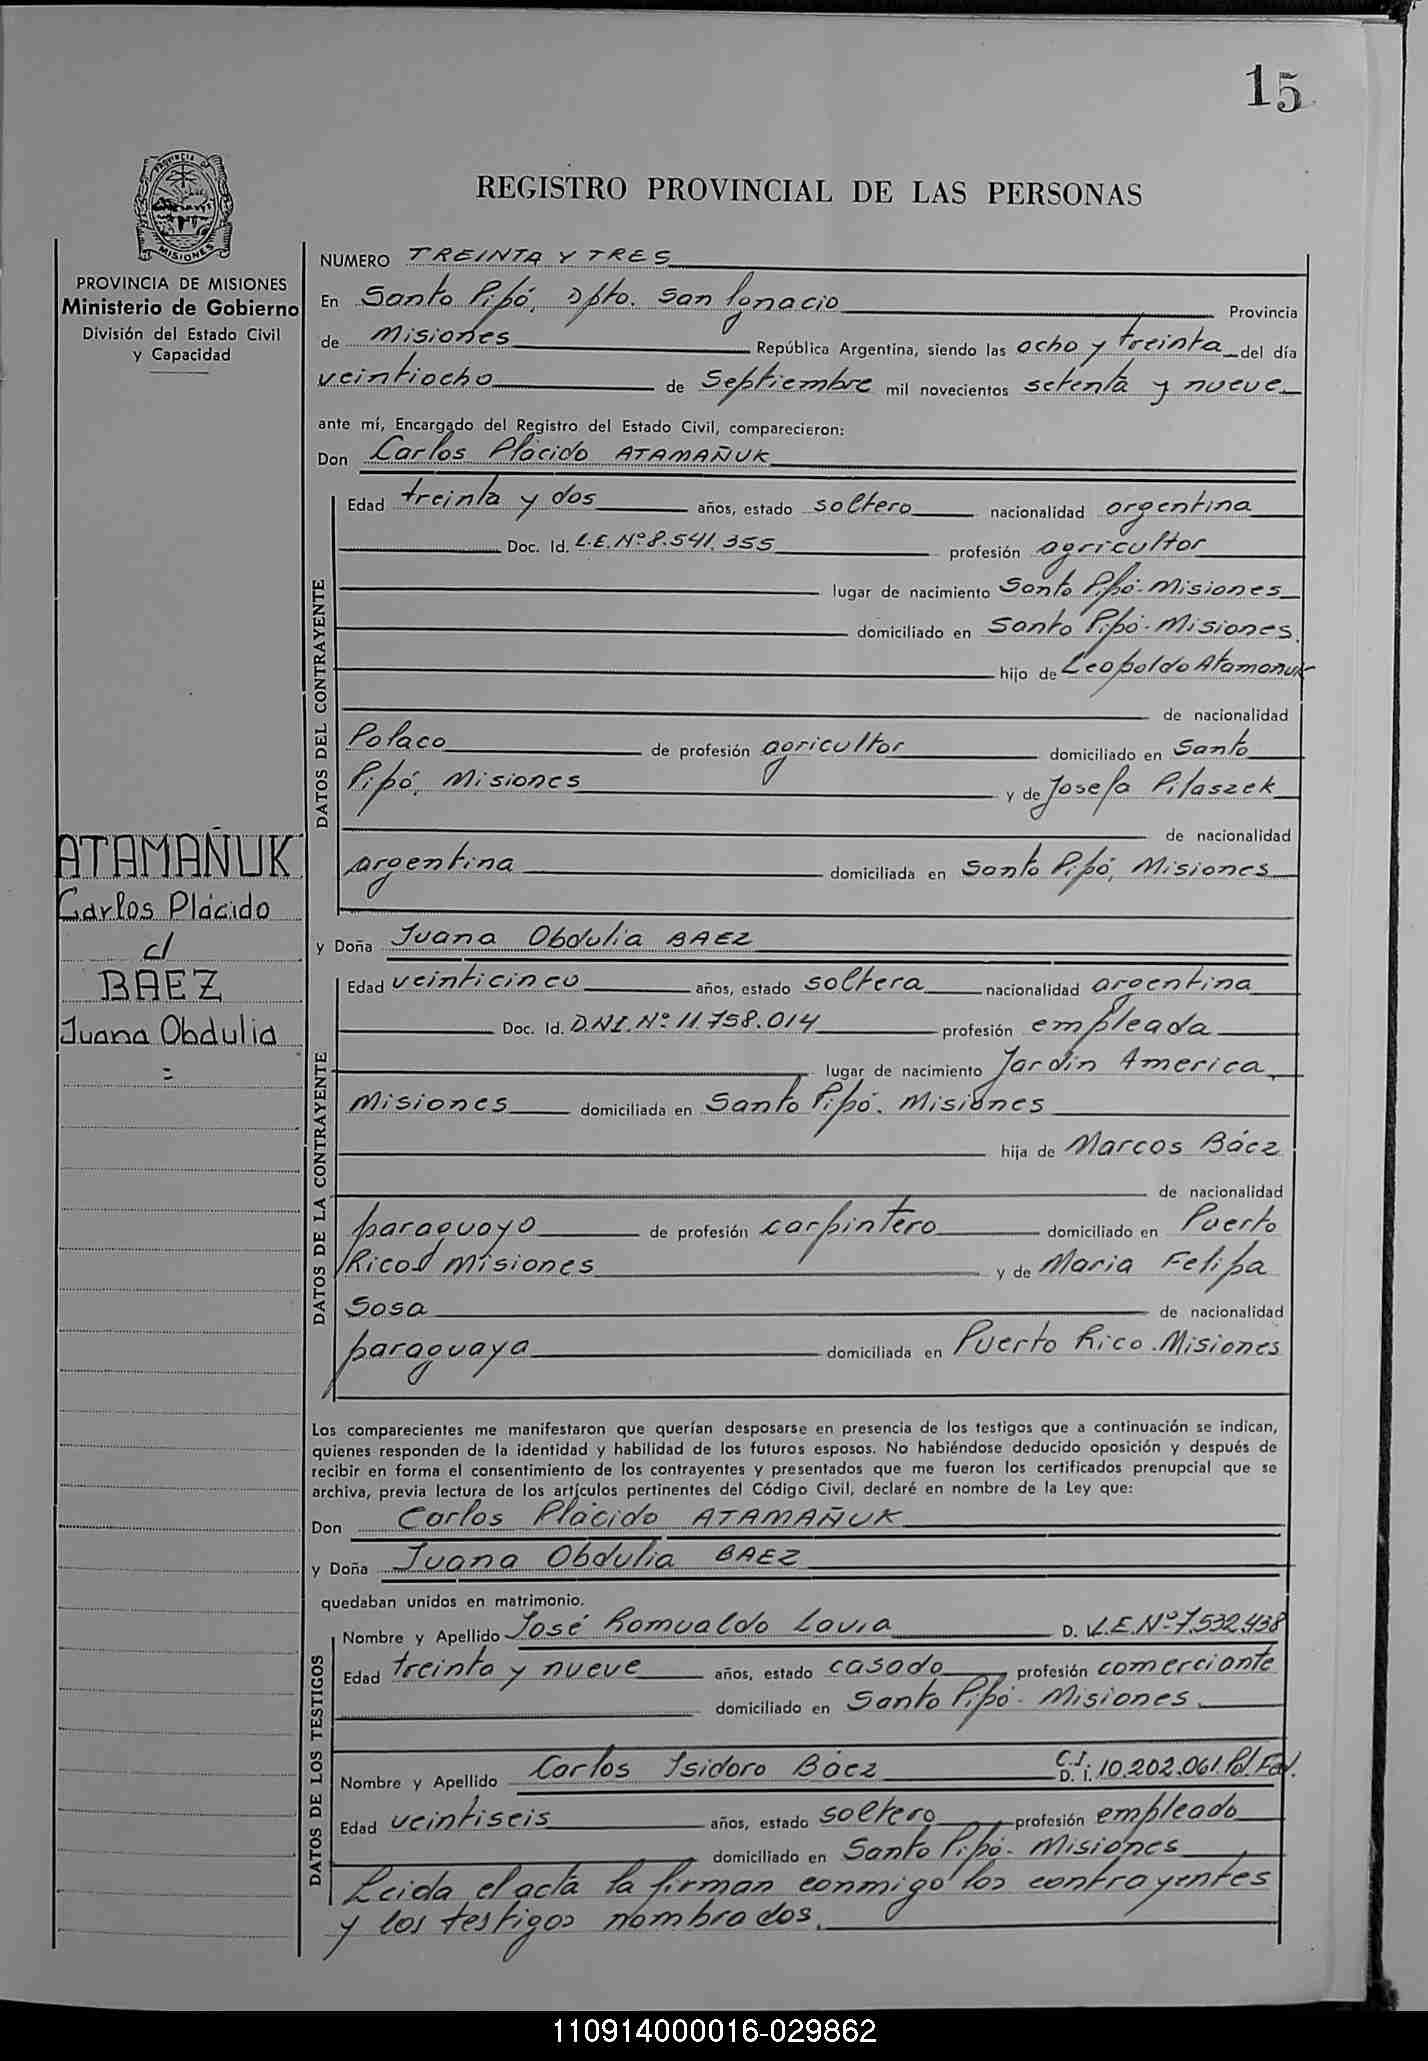 15
PROVINCIA DE
MISIONES
REGISTRO PROVINCIAL DE LAS PERSONAS
PROVINCIA DE MISIONES
Ministerio de Gobierno
División del Estado Civil
y Capacidad
NUMERO TREINTA Y TRES
En Santo Pipó, Dpto. San Ignacio Provincia
de Misiones República Argentina, siendo las ocho y treinta del día
veintiocho de Septiembre mil novecientos setenta y nueve
ante mí, Encargado del Registro del Estado Civil, comparecieron:
Don Carlos Plácido ATAMAÑUK
DATOS DEL CONTRAYENTE
Edad treinta y dos años, estado soltero nacionalidad argentina
Doc. Id. L.E. Nº 8.541.355 profesión agricultor
lugar de nacimiento Santo Pipó-Misiones
domiciliado en Santo Pipó-Misiones.
hijo de Leopoldo Atamañuk
de nacionalidad
Polaco de profesión agricultor domiciliado en Santo
Pipó, Misiones y de Josefa Pilaszek
de nacionalidad
argentina domiciliada en Santo Pipó, Misiones
ATAMAÑUK
Carlos Plácido
c/
BAEZ
Juana Obdulia
=
y Doña Juana Obdulia BAEZ
DATOS DE LA CONTRAYENTE
Edad veinticinco años, estado soltera nacionalidad argentina
Doc. Id. D.N.I. Nº 11.758.014 profesión empleada
lugar de nacimiento Jardín America,
Misiones domiciliada en Santo Pipó. Misiones
hija de Marcos Báez
de nacionalidad
paraguayo de profesión carpintero domiciliado en Puerto
Rico Misiones y de Maria Felipa
Sosa de nacionalidad
paraguaya domiciliada en Puerto Rico. Misiones
Los comparecientes me manifestaron que querían desposarse en presencia de los testigos que a continuación se indican,
quienes responden de la identidad y habilidad de los futuros esposos. No habiéndose deducido oposición y después de
recibir en forma el consentimiento de los contrayentes y presentados que me fueron los certificados prenupcial que se
archiva, previa lectura de los artículos pertinentes del Código Civil, declaré en nombre de la Ley que:
Don Carlos Plácido ATAMAÑUK
y Doña Juana Obdulia BAEZ
quedaban unidos en matrimonio.
DATOS DE LOS TESTIGOS
Nombre y Apellido José Romualdo D. L.E. Nº 7.532.438
Edad treinta y nueve años, estado casado profesión comerciante
domiciliado en Santo Pipó - Misiones.
Nombre y Apellido Carlos Isidoro Báez C.I. D. I. 10.202.061. Pol. Fed.
Edad veintiseis años, estado soltero profesión empleado
domiciliado en Santo Pipó- Misiones
Leida el acta la firman conmigo los contrayentes
y los testigos nombrados.
110914000016-029862